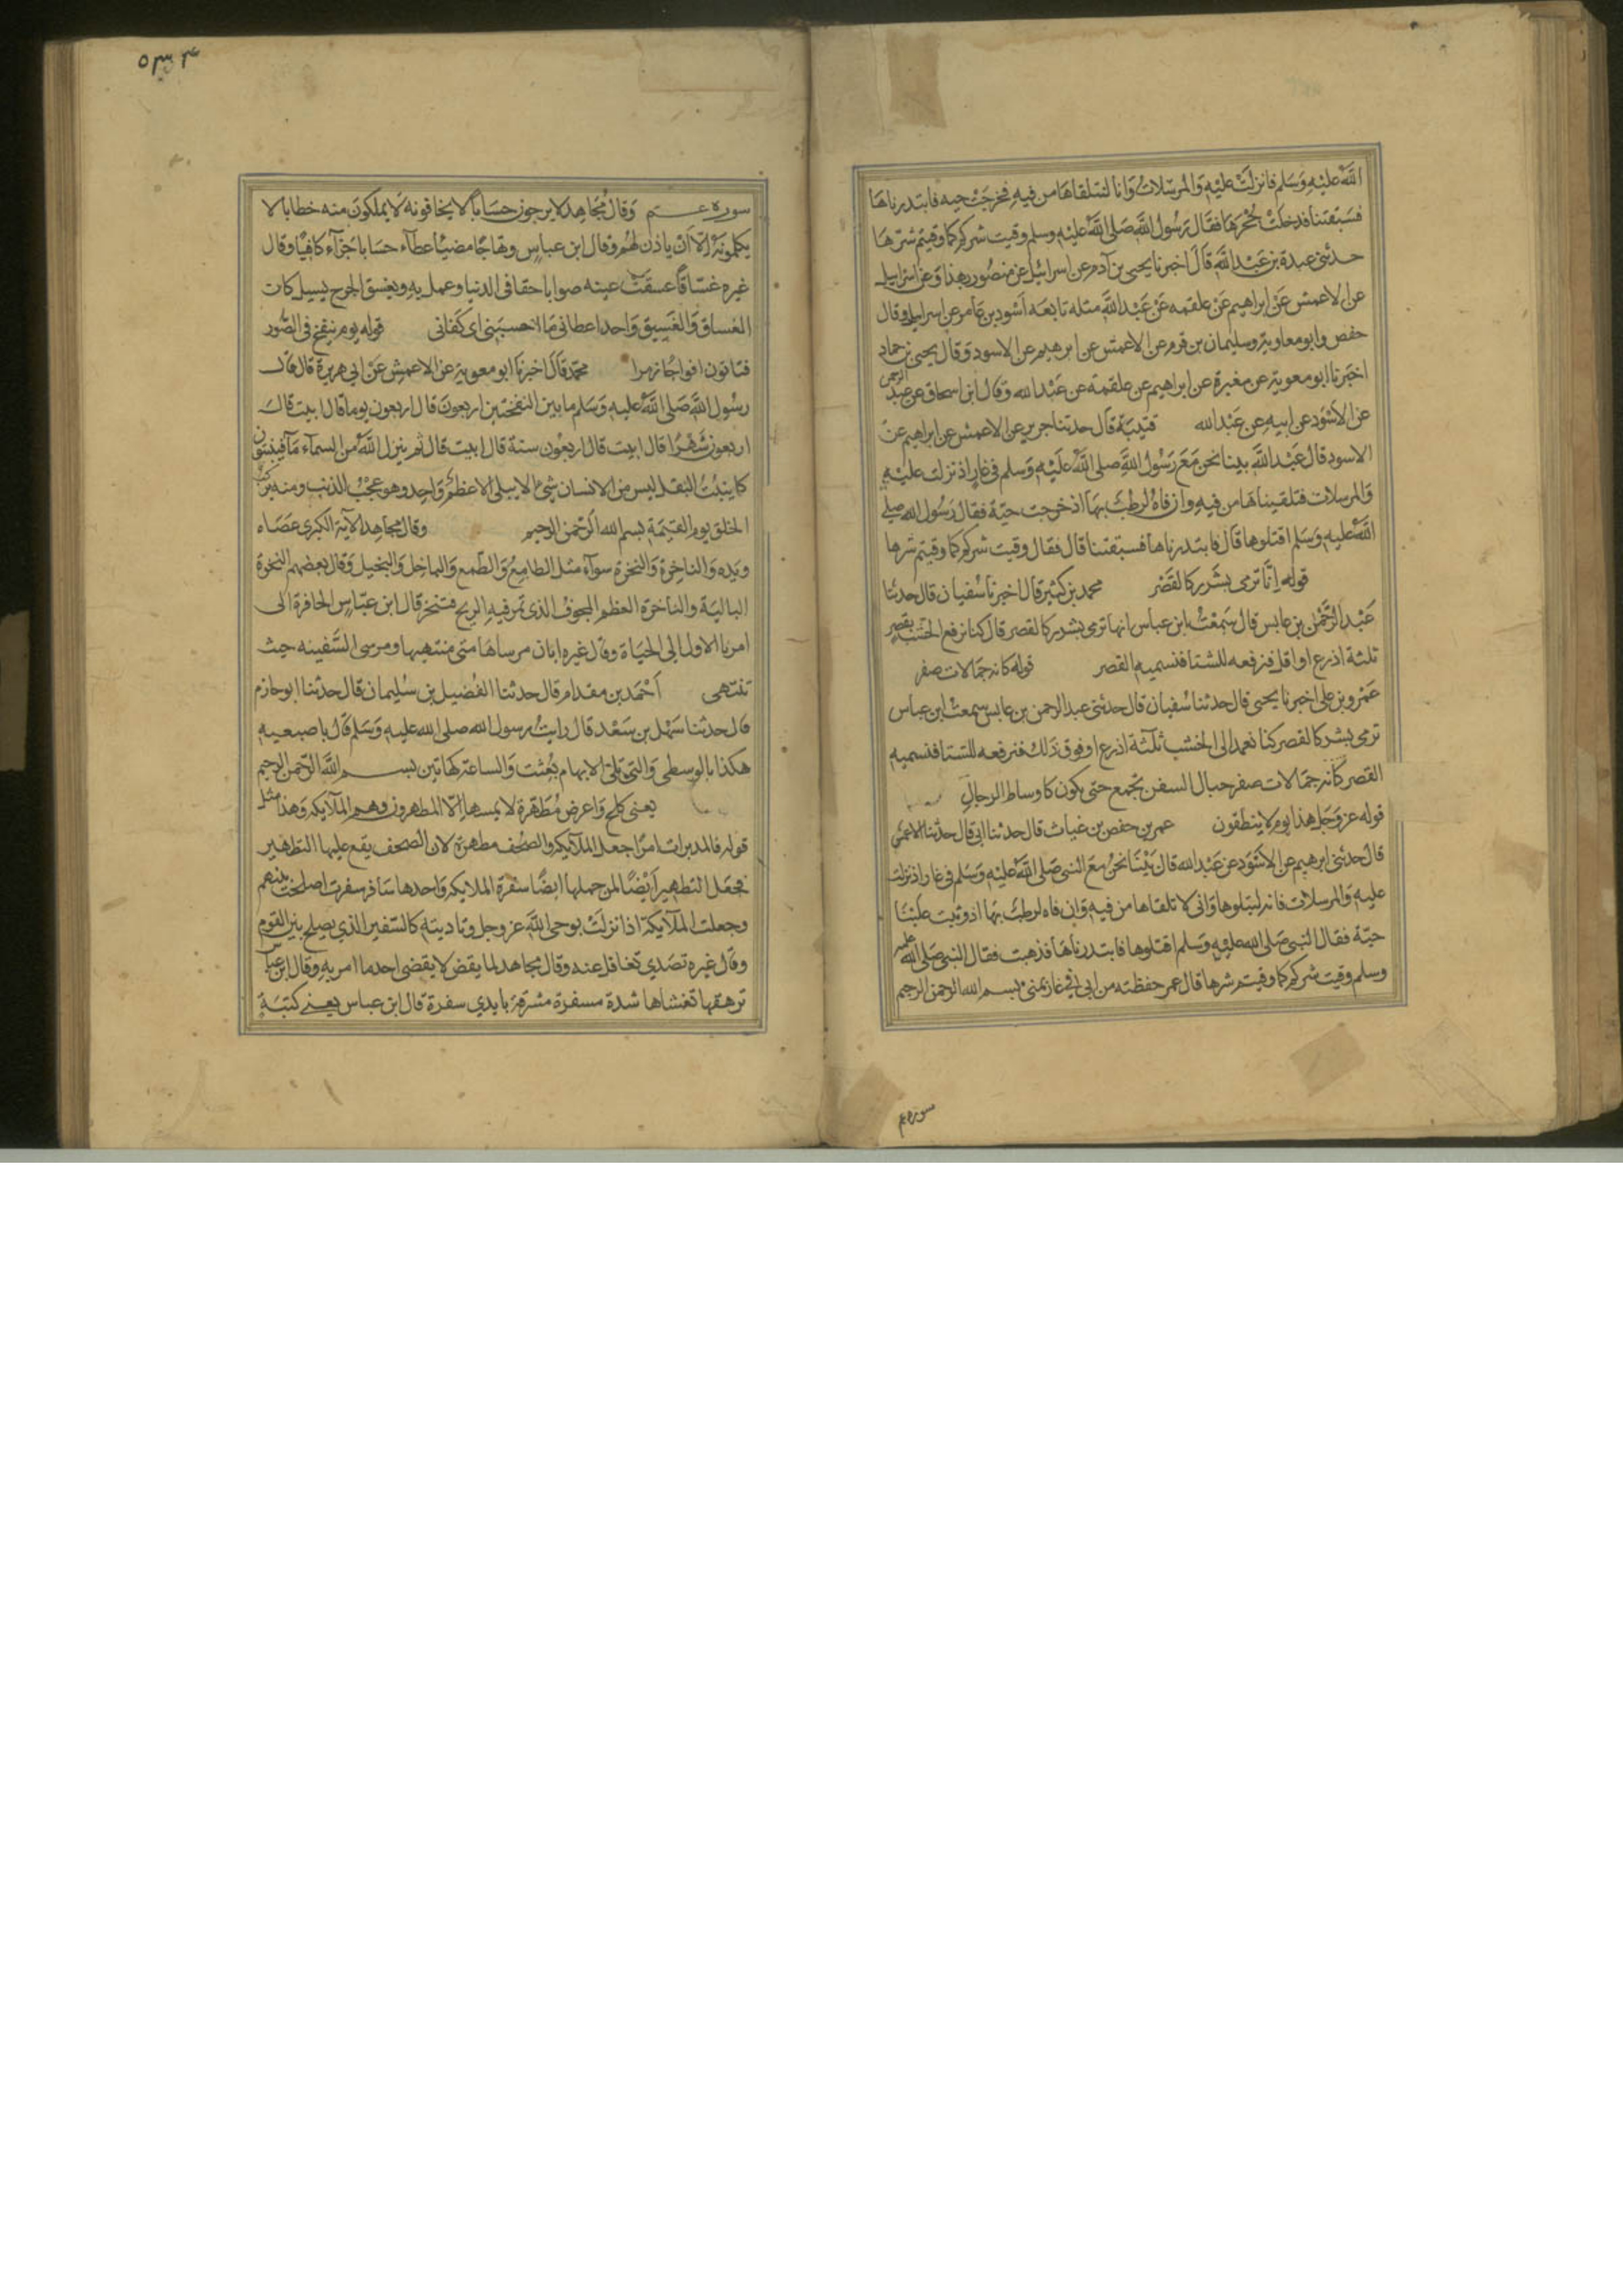 الله عليه وسلم فانزلت عليه والمرسلات وانا لنتلقاها من فيه فخرجت حيه فابتدرناها
فسبقتنا فدخلت جحرها فقال رسول الله صلى الله عليه وسلم وقيت شركم كما وقيتم شرها
حدثنى عبدة بن عبد الله قال اخبرنا يحيى بن آدم عن اسرائيل عن منصور بهذا وعن اسراييل
عن الاعمش عن ابراهيم عن علقمه عن عبد الله مثله تابعه اسود بن عامر عن اسراييل وقال
حفص وابو معاوية وسليمان بن قرم عن الاعمش عن ابرهيم عن الاسود وقال يحيى بن حماد
اخبرنا ابو معوية عن مغيرة عن ابراهيم عن علقمة عن عبد الله وقال ابن اسحاق عن عبد الرحمن
عن الاسود عن ابيه عن عبد الله قتيبة قال حدثنا جرير عن الاعمش عن ابراهيم عن
الاسود قال عبد الله بينا نحن مع رسول الله صلى الله عليه وسلم في غار اذ نزلت عليه
والمرسلات فتلقيناها من فيه وان فاه لرطب بها اذ خرجت حية فقال رسول الله صلى
الله عليه وسلم اقتلوها قال فابتدرناها فسبقتنا قال فقال وقيت شركم كما وقيتم شرها
قوله انها ترمى بشرر كالقصر محمد بن كثير قال اخبرنا سفيان قال حدثنا
عبد الرحمن بن عابس قال سمعت ابن عباس انها ترمى بشرر كالقصر قال كنا نرفع الخشب بقصر
ثلثة اذرع او اقل فنرفعه للشتا فنسميه القصر قوله كانه جمالات صفر
عمرو بن على اخبرنا يحيى قال حدثنا سفيان قال حدثنى عبد الرحمن بن عابس سمعت ابن عباس
ترمى بشرر كالقصر كنا نعمد الى الخشب ثلثة اذرع او فوق ذلك فنرفعه للشتا فنسميه
القصر كانه جمالات صفر حبال السفن تجمع حتى يكون كاوساط الرجال
قوله عز وجل هذا يوم لا ينطقون عمر بن حفص بن غياث قال حدثنا ابى قال حدثنا الاعمش
قال حدثنى ابرهيم عن الاسود عن عبد الله قال بينما نحن مع النبى صلى الله عليه وسلم فى غار اذ نزلت
عليه والمرسلات فانه ليتلوها وانى لاتلقاها من فيه وان فاه لرطب بها اذ وثبت علينا
حية فقال النبى صلى الله عليه وسلم اقتلوها فابتدرناها فذهبت فقال النبى صلى الله عليه
وسلم وقيت شركم كما وقيتم شرها قال عمر حفظته من ابى فى غار بمنى بسم الله الرحمن الرحيم
سوره عم
٥٣٤
سوره عم وقال مجاهد لا يرجون حسابا لا يخافونه لا يملكون منه خطابا لا
يكلمونه الا ان ياذن لهم وقال ابن عباس وهاجا مضيئا عطاء حسابا جزآء كافيا وقال
غيره غساقا غسقت عينه صوابا حقا فى الدنيا وعمل به ويغسق الجرح يسيل كان
الغساق والغسيق واحد اعطانى ما احسبنى اى كفانى قوله يوم ينفخ فى الصور
فتاتون افواجا زمرا محمد قال اخبرنا ابو معوية عن الاعمش عن ابى هريرة قال قال
رسول الله صلى الله عليه وسلم ما بين النفختين اربعون قال اربعون يوما قال ابيت قال
اربعون شهرا قال ابيت قال اربعون سنة قال ابيت قال ثم ينزل الله من السماء مآء فينبتون
كما ينبت البقل ليس من الانسان شىء الا يبلى الا عظم واحد وهو عجب الذنب ومنه يركب
الخلق يوم القيمة بسم الله الرحمن الرحيم وقال مجاهد الاية الكبرى عصاه
ويده والناخرة والنخرة سوآء مثل الطامع والطمع والباخل والبخيل وقال بعضهم النخرة
البالية والناخرة العظم المجوف الذى تمر فيه الريح فتنخر قال ابن عباس الحافرة الى
امرنا الاول الى الحياة وقال غيره ايان مرساها متى منتهيها ومرسى السفينه حيث
تنتهى احمد بن مقدام قال حدثنا الفضيل بن سليمان قال حدثنا ابو حازم
قال حدثنا سهل بن سعد قال رايت رسول الله صلى الله عليه وسلم قال باصبعيه
هكذا بالوسطى والتى تلى الابهام بعثت والساعة كهاتين بسم الله الرحمن الرحيم
يعنى كلح واعرض مطهرة لا يمسها الا المطهرون وهم الملآيكه وهذا مثل
قوله فالمدبرات امرا جعل الملآيكه والصحف مطهرة لان الصحف يقع عليها التطهير
فجعل التطهير ايضا لمن حملها ايضا سفرة الملايكه واحدها سافر سفرت اصلحت بينهم
وجعلت الملآيكة اذا نزلت بوحى الله عز وجل وتاديته كالسفير الذي يصلح بين القوم
وقال غيره تصدي تغافل عنه وقال مجاهد لما يقض لا يقضى احد ما امر به وقال ابن عباس
ترهقها تغشاها شدة مسفرة مشرقة بايدي سفرة قال ابن عباس يعنى كتبة